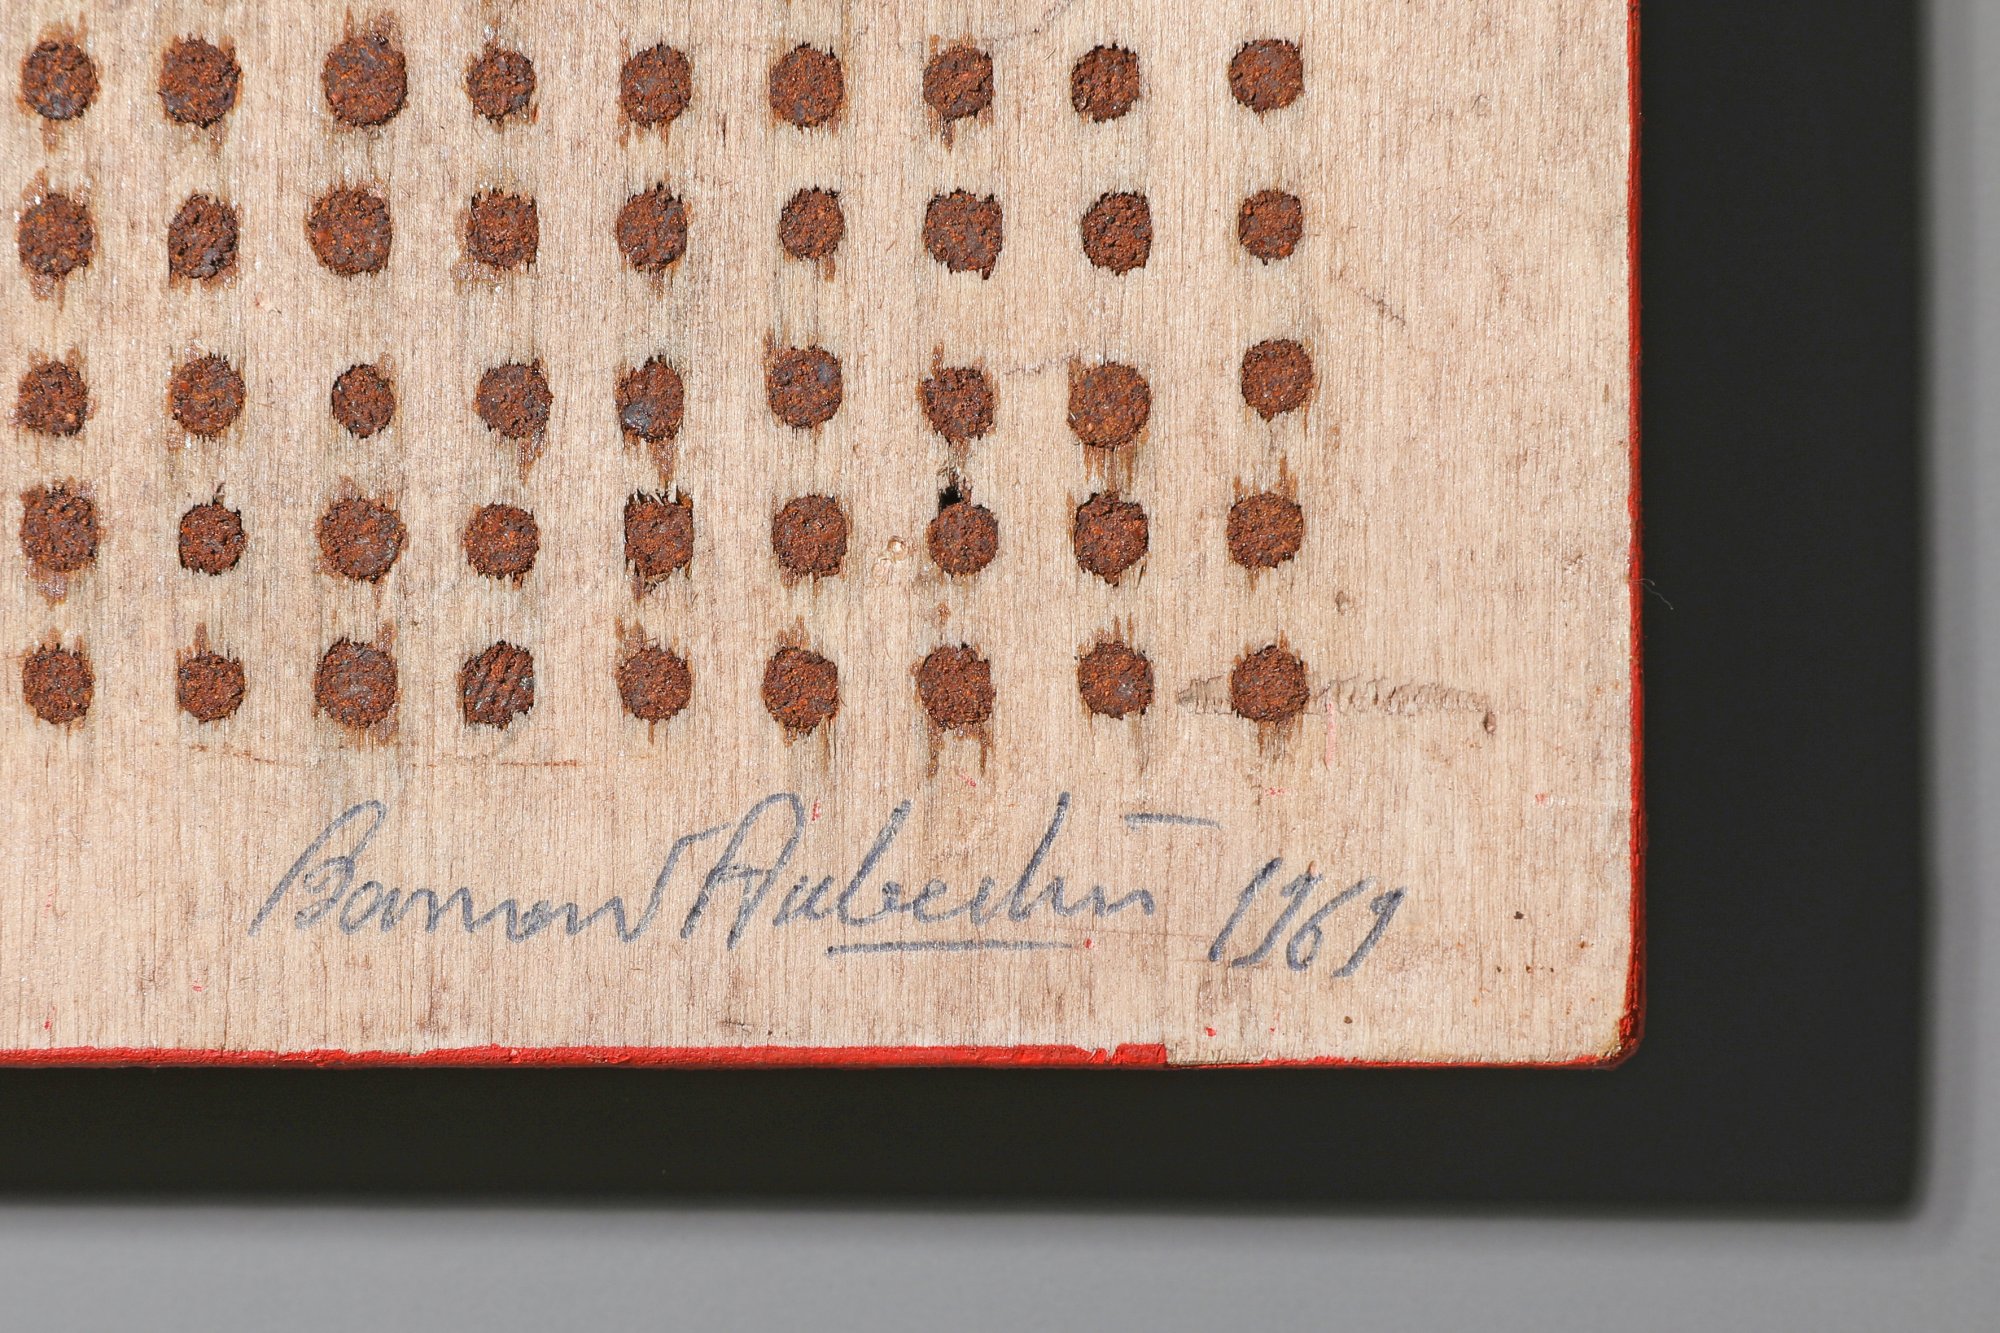 Bernard Aubertin 1969